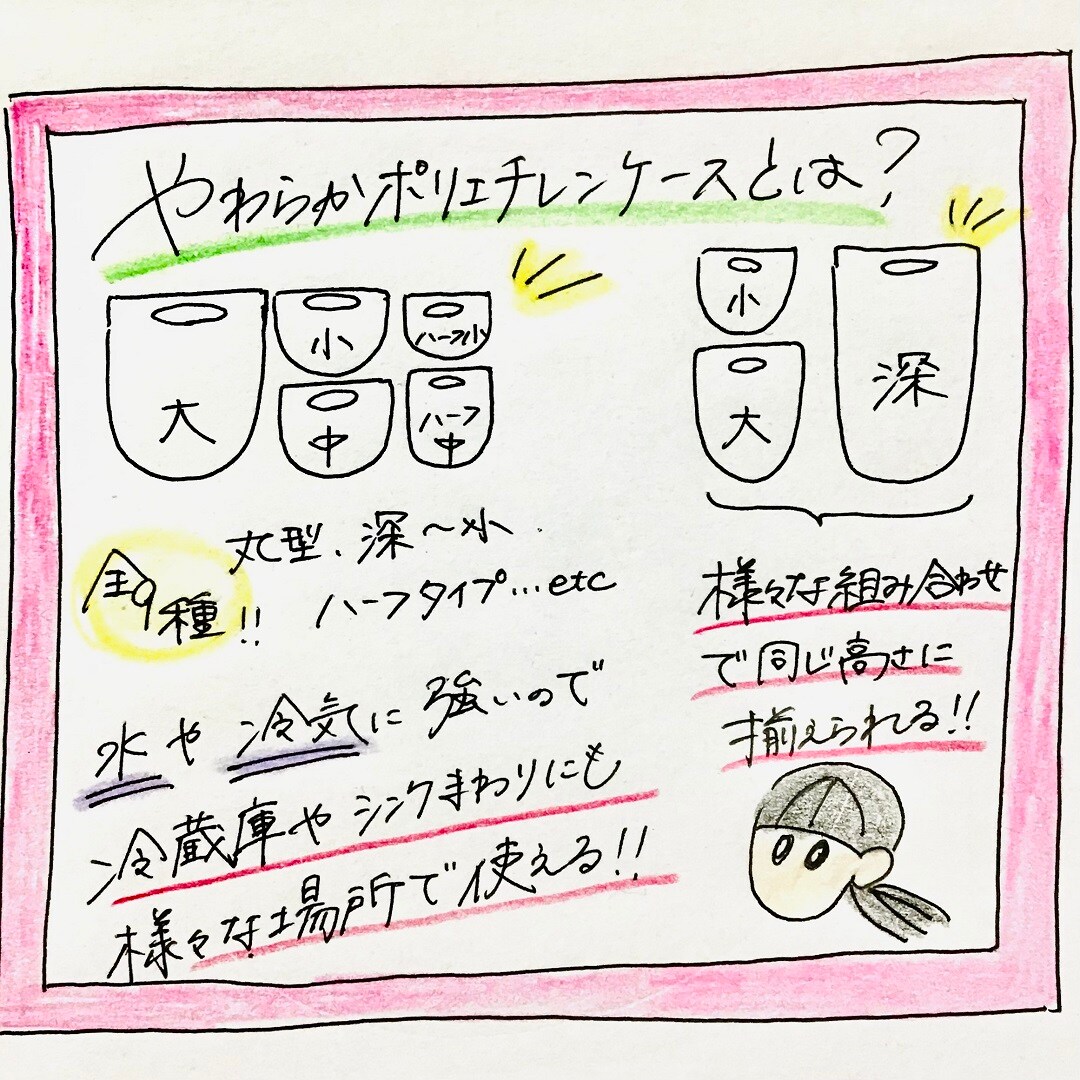 やわらかポリエチレンケースとは?
大
小
中
ハーフ小
ハーフ中
小
大
深
全9種!!
丸型、深〜小
ハーフタイプ...etc
水や冷気に強いので
冷蔵庫やシンクまわりにも
様々な場所で使える!!
様々な組み合わせ
で同じ高さに
揃えられる!!